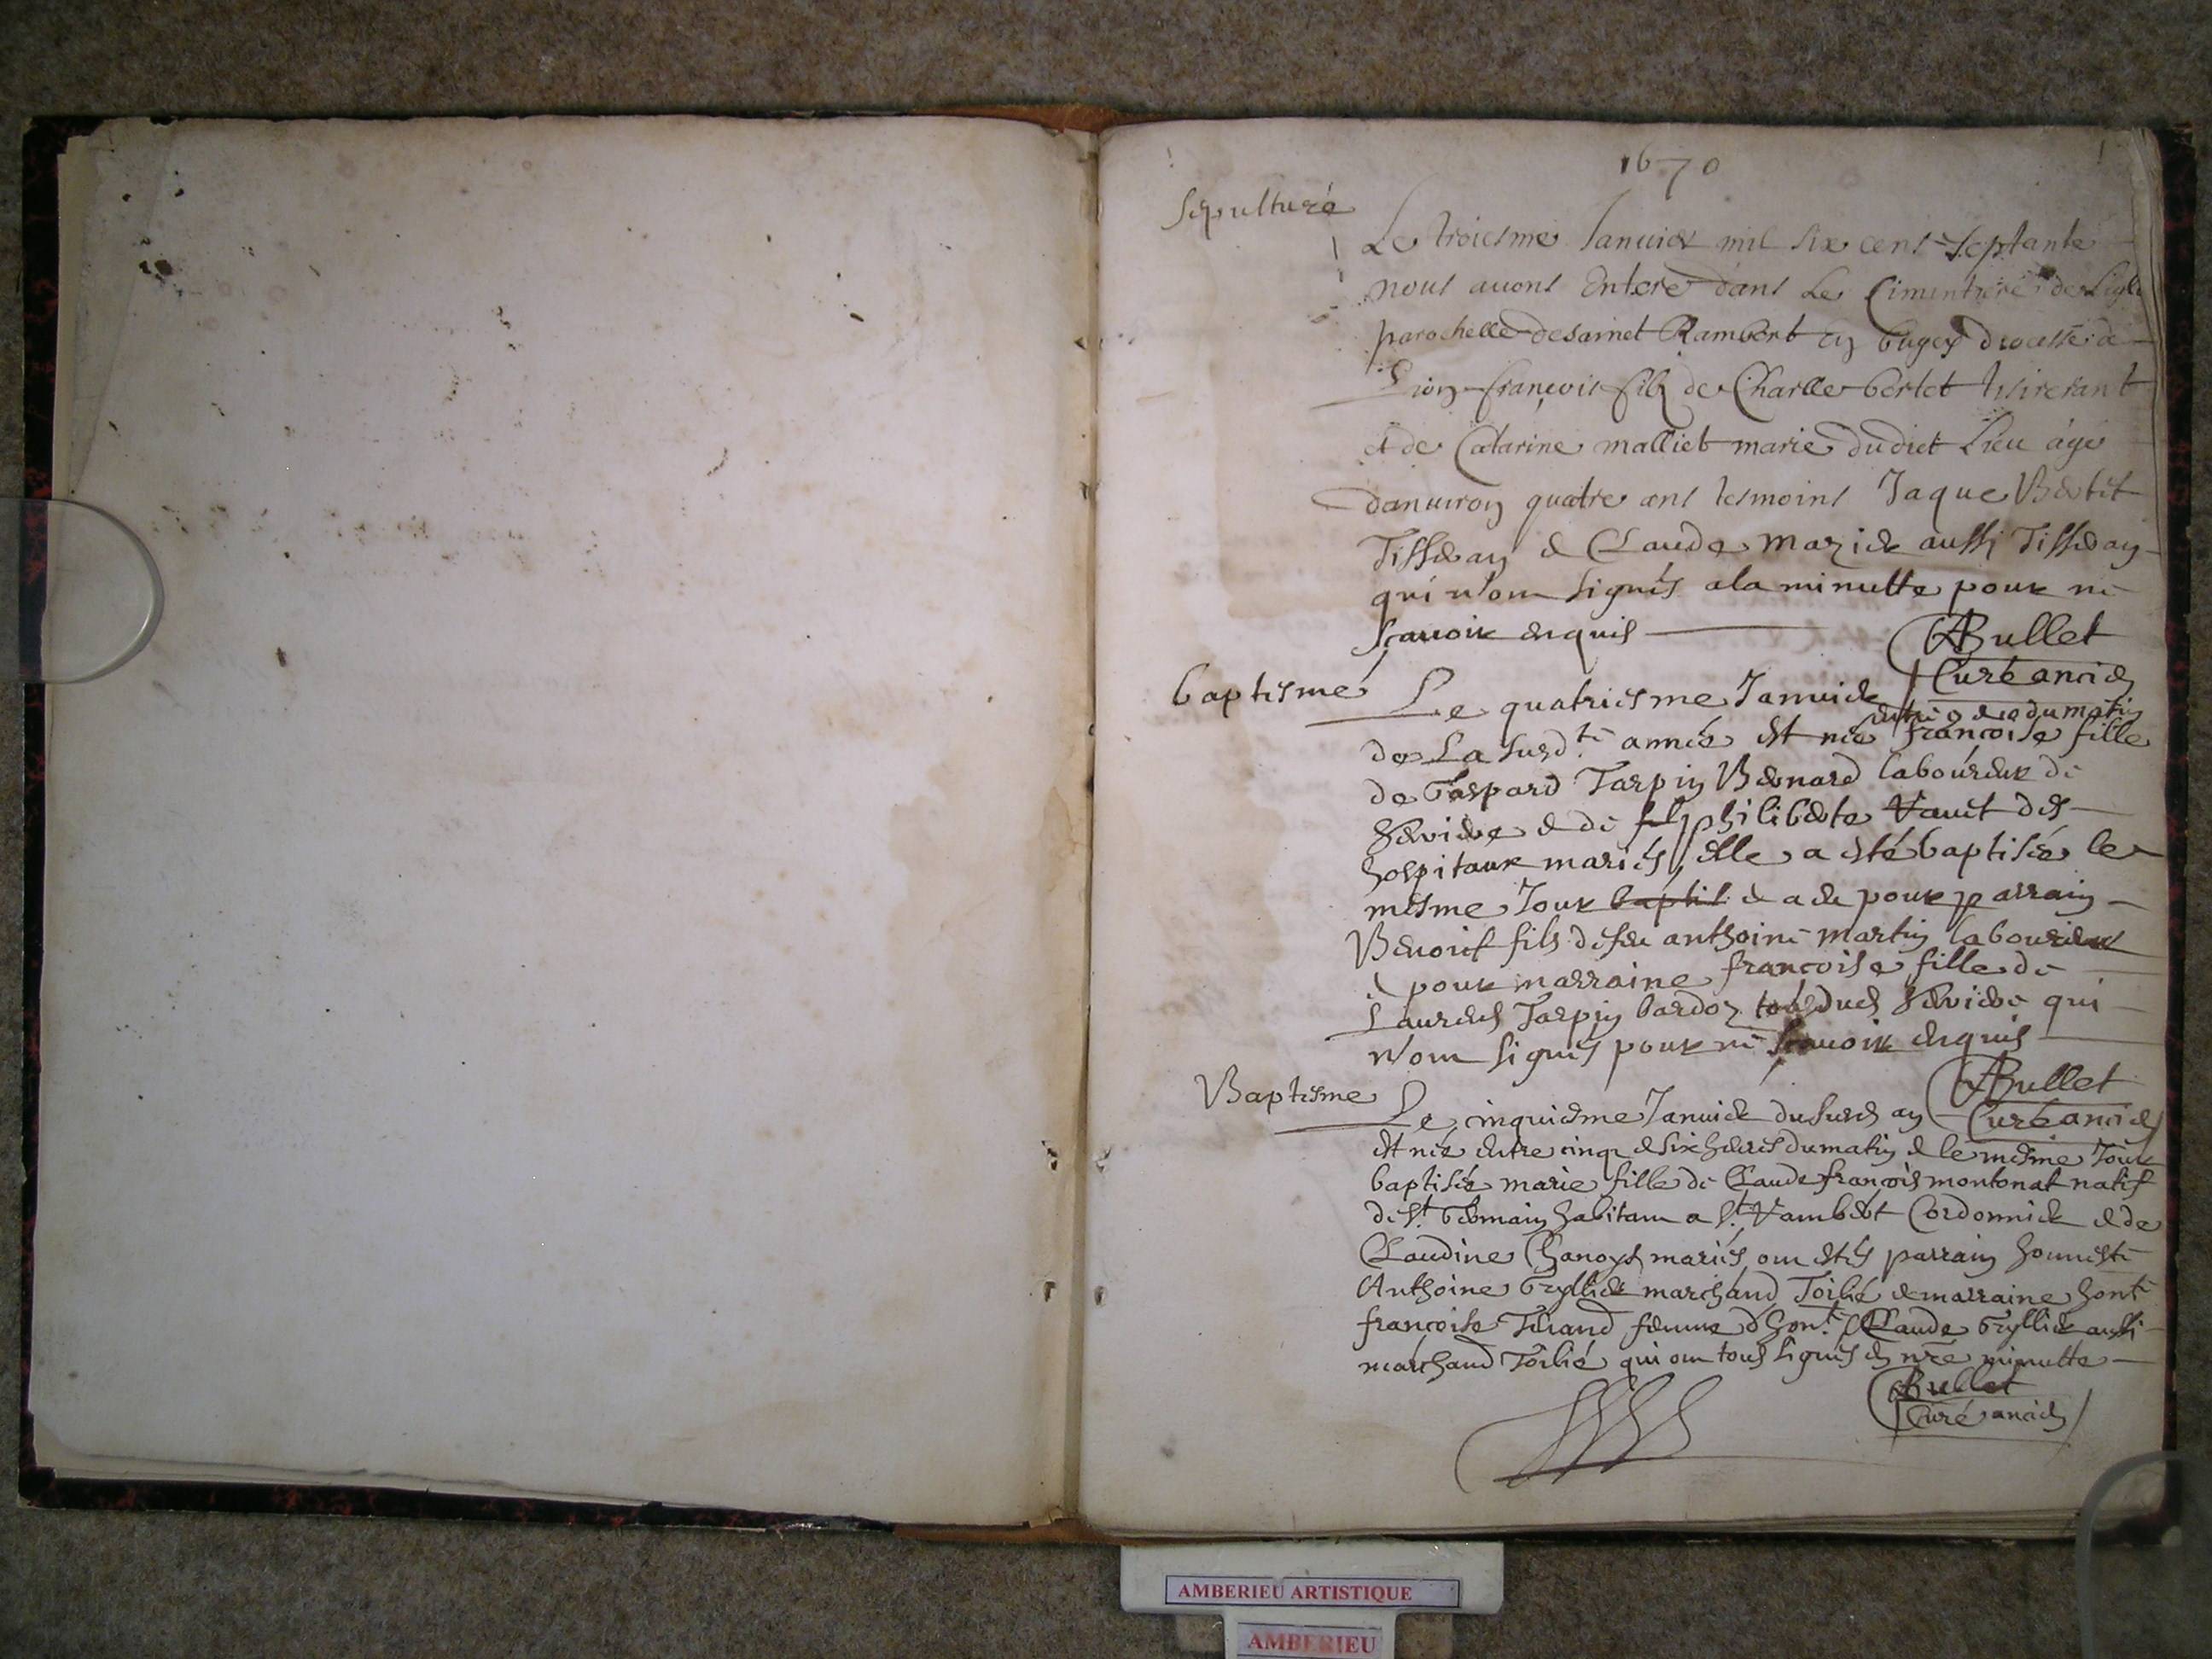 1670
Sepulture
Le troiesme Januier mil six cens septante
nous auons Enteré dans Le Cimentiere de
parochelle de sainct Rambert en bugey diocesse de
Lion françois filz de Charlle bertet
et de Catarine malliet marié dudict Lieu âgé
danuiron quatre ans tesmoins Jaque Bertet
Tisseran & Claude mazier aussi Tisseran
qui n'ont signés a la minutte pour ne
scauoir enquis
ABullet
Curé ancien
baptesme
Le quatriesme Januier
du matin
de La susd.te année est née françoise fille
de Gaspard Tarpin Bernard laboureur de
& de philiberte Vauct des
hospitaux mariés, elle a esté baptisée le
mesme Jour baptis & a eu pour parrain
Benoict fils de feu anthoine martin laboureur
& pour marraine françoise fille de
Laurens Tarpin bardoz qui
n'ont signés pour ne scauoir enquis
ABullet
Curé ancien
Baptesme
Le cinquiesme Januier du susd an
est née entre cinq & six heures du matin & le mesme Jour
baptisée marie fille de Claude françois montonat natif
de s.t Germain habitant a s.t Rambert Cordonnier & de
Claudine mariés, ont estés parrain honneste
Anthoine marchand & marraine hon.te
françoise femme d'hon.te Claude aussi
marchand qui ont tous signés en nre minutte
Bullet
Curé ancien
AMBERIEU ARTISTIQUE
AMBERIEU